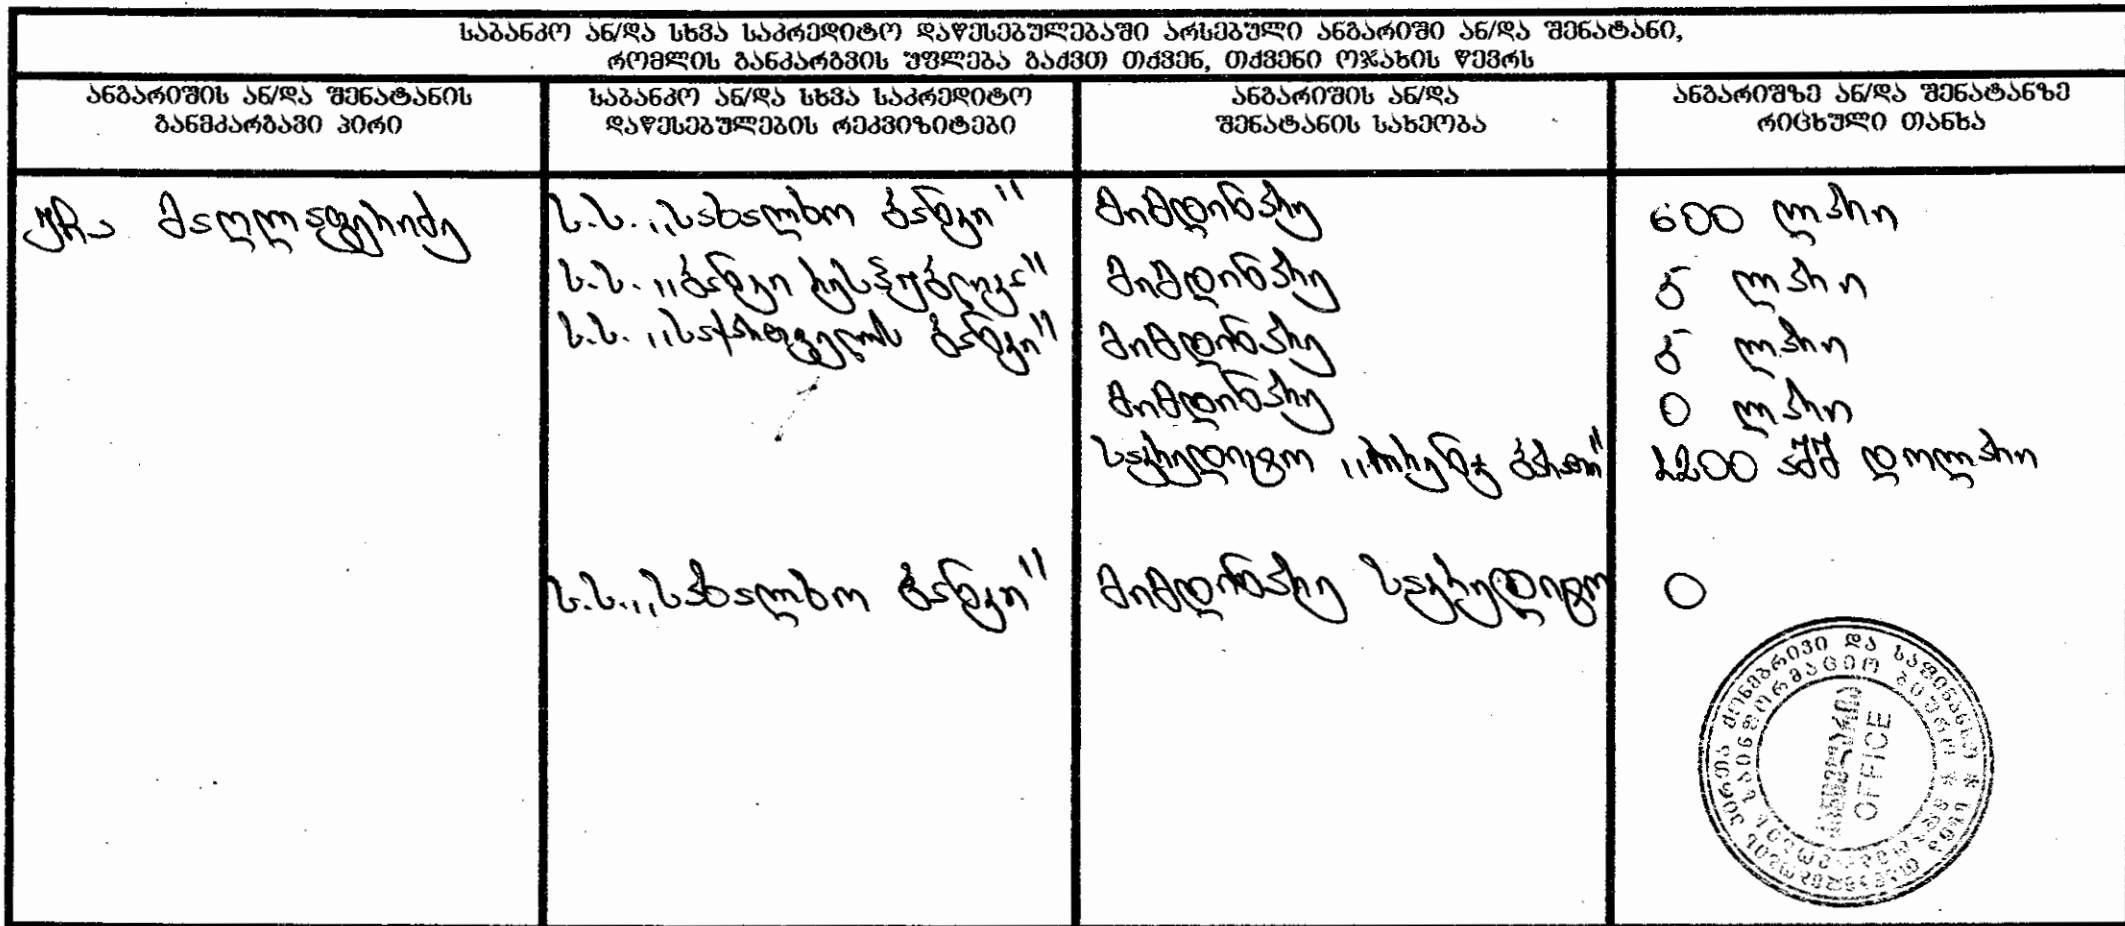 საბანკო ან/და სხვა საკრედიტო დაწესებულებაში არსებული ანგარიში ან/და შენატანი,
რომლის განკარგვის უფლება გაქვთ თქვენ, თქვენი ოჯახის წევრს
ანგარიშის ან/და შენატანის
განმკარგავი პირი
საბანკო ან/და სხვა საკრედიტო
დაწესებულების რეკვიზიტები
ანგარიშის ან/და
შენატანის სახეობა
ანგარიშზე ან/და შენატანზე
რიცხული თანხა
მაღლაფერიძე
ს.ს. „სახალხო ბანკი" მიმდინარე 600 ლარი
ს.ს. „ბანკი რესპუბლიკა" მიმდინარე 5 ლარი
ს.ს. „საქართველოს ბანკი" მიმდინარე 5 ლარი
მიმდინარე 0 ლარი
საკრედიტო ბარათი" აშშ დოლარი
ს.ს. „სახალხო ბანკი" მიმდინარე საკრედიტო 0
კანცელარია
OFFICE